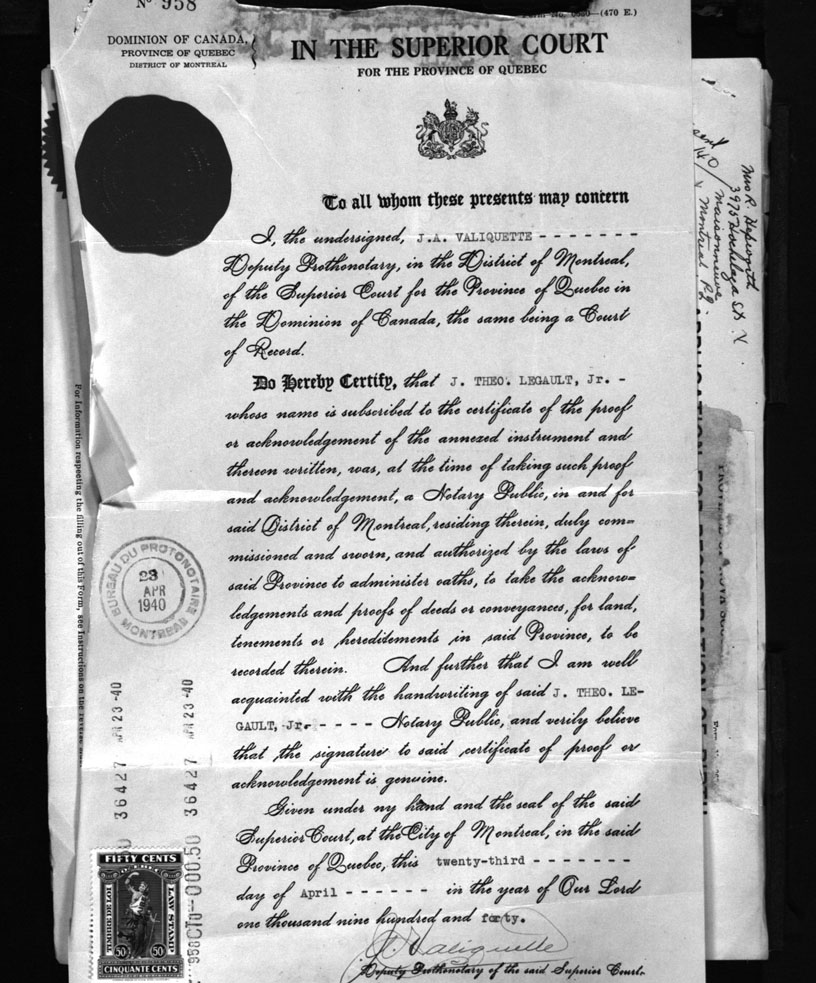 Nº 958
(470 E.)
DOMINION OF CANADA,
PROVINCE OF QUEBEC
DISTRICT OF MONTREAL
IN THE SUPERIOR COURT
FOR THE PROVINCE OF QUEBEC
To all whom these presents may concern
I, the undersigned, J.A. VALIQUETTE - - - - - - -
Deputy Prothonotary, in the District of Montreal,
of the Superior Court for the Province of Quebec in
the Dominion of Canada, the same being a Court
of Record.
Do Hereby Certify, that J. THEO. LEGAULT, Jr. -
whose name is subscribed to the certificate of the proof
or acknowledgement of the annexed instrument and
thereon written, was, at the time of taking such proof
and acknowledgement, a Notary Public, in and for
said District of Montreal, residing therein, duly com-
missioned and sworn, and authorized by the laws of
said Province to administer oaths, to take the acknow-
ledgements and proofs of deeds or conveyances, for land,
tenements or hereditements in said Province, to be
recorded therein. And further that I am well
acquainted with the handwriting of said J. THEO. LE-
GAULT, Jr. - - - - Notary Public, and verily believe
that the signature to said certificate of proof or
acknowledgement is genuine.
Given under ny hand and the seal of the said
Superior Court, at the City of Montreal, in the said
Province of Quebec, this twenty-third - - - - - - -
day of April - - - - - - in the year of Our Lord
one thousand nine hundred and forty.
Valiquette
Deputy Prothonotary of the said Superior Court.
BUREAU DU PROTONOTAIRE
23
APR
1940
MONTREAL
36427 APR 23-40
36427 APR 23-40
958 CTO-000.50
FIFTY CENTS
LAW STAMP
50 50
CINQUANTE CENTS
For Information respecting the filling out of this Form, see Instructions on the
Mrs R. Hepworth
3975
Maisonneuve
Montreal P.Q.
APPLICATION FOR REGISTRATION OF